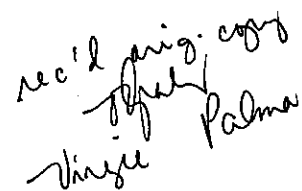 rec'd orig. copy
Virgie Palma